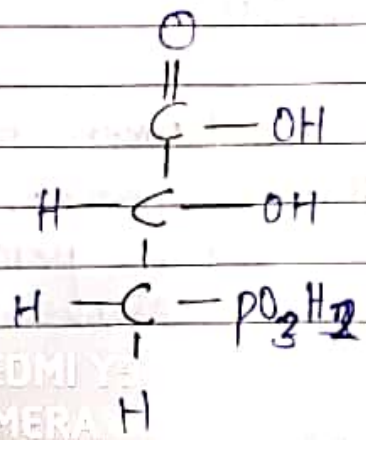 O
||
C — OH
|
H — C — OH
|
H — C — PO3H2
|
H